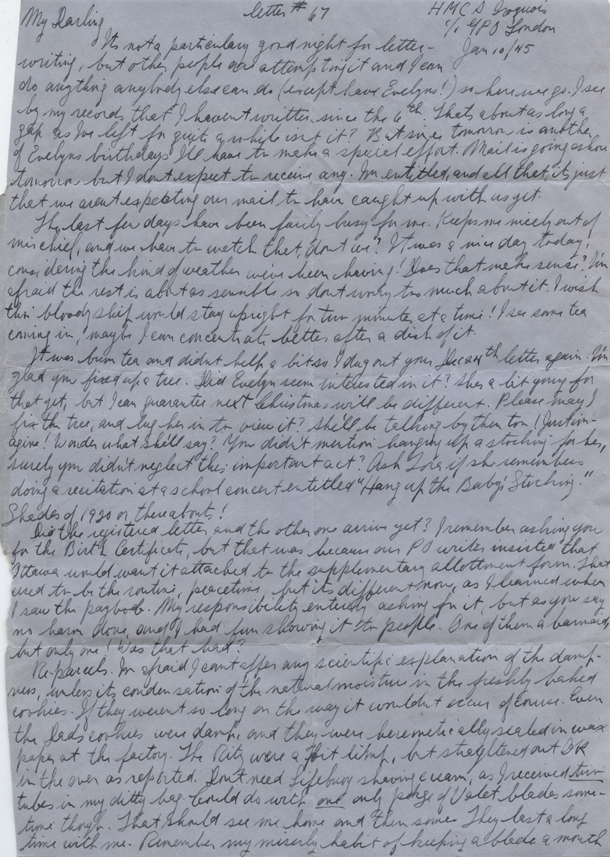 My Darling
letter # 67
HMCS Iroquois
c/o GPO London
Jan 10/45
Its not a particularly good night for letter-
writing, but other people are attempting it and I can
do anything anybody else can do (except have Evelyns!) so here we go. I see
by my records that I haven't written since the 6th. Thats about as long a
gap as I've left for quite a while isn't it? But since tomorrow is another
of Evelyns birthdays I'll have to make a special effort. Mail is going ashore
tomorrow but I don't expect to receive any. I'm entitled, and all that, its just
that we arent expecting our mail to have caught up with us yet.
The last few days have been fairly busy for me. Keeps me nicely out of
mischief, and we have to watch that, dont we? It was a nice day today,
considering the kind of weather weve been having! Does that make sense? I'm
afraid the rest is about as sensible so dont worry too much about it. I wish
this bloody ship would stay upright for two minutes at a time! I see some tea
coming in, maybe I can concentrate better after a dish of it.
It was bum tea and didnt help a bit so I dug out your letter again. I'm
glad you fixed up a tree. Did Evelyn seem interested in it? Shes a bit young for
that yet, but I can guarantee next Christmas will be different. Please may I
fix the tree, and lug her in to view it? She'll be talking by then too! Just im-
agine! Wonder what she'll say? You didn't mention hanging up a stocking for her,
surely you didn't neglect this important act? Ask Lora if she remembers
doing a recitation at a school concert entitled "Hang up the Baby's Stocking."
Shades of 1920 or thereabout!
Did the registered letter and the other one arrive yet? I remember asking you
for the Birth Certificate, but that was because our PO writer insisted that
Ottawa would want it attached to the supplementary allotment form. That
used to be the routine, peacetime, but its different now, as I learned when
I saw the paybob. My responsibility entirely asking for it, but as you say
no harm done, and I had fun showing it to people. One of them a barmaid,
but only one! Was that bad?
Re parcels. I'm afraid I cant offer any scientific explanation of the damp-
ness, unless its condensation of the natural moisture in the freshly baked
cookies. If they werent so long on the way it wouldn't occur of course. Even
the Dads cookies were damp, and they were hermetically sealed in wax
paper at the factory. The Ritz were a bit limp, but straightened out OK
in the oven as reported. Dont need Lifebuoy shaving cream, as I received two
tubes in my ditty bag. Could do with one only pkge of Valet blades some-
time though. That should see me home and then some. They last a long
time with me. Remember my miserly habit of keeping a blade a month